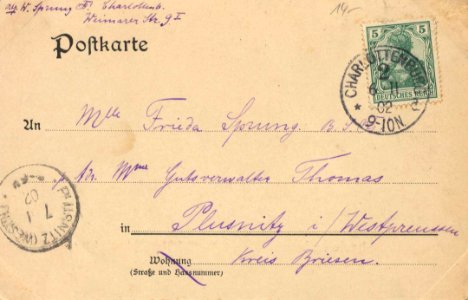 W. Sprung Charlottenb.
Weimarer Str. 9 I
14.-
Postkarte
5
DEUTSCHES REICH
CHARLOTTENBURG
2
02
9-10N
An Mlle Frieda Sprung
Mme Gutsverwalter Thomas
in Plusnitz i/Westpreussen
Wohnung Kreis Briesen.
(Straße und Hausnummer)
PLUSNITZ (WESTPR)
7
02